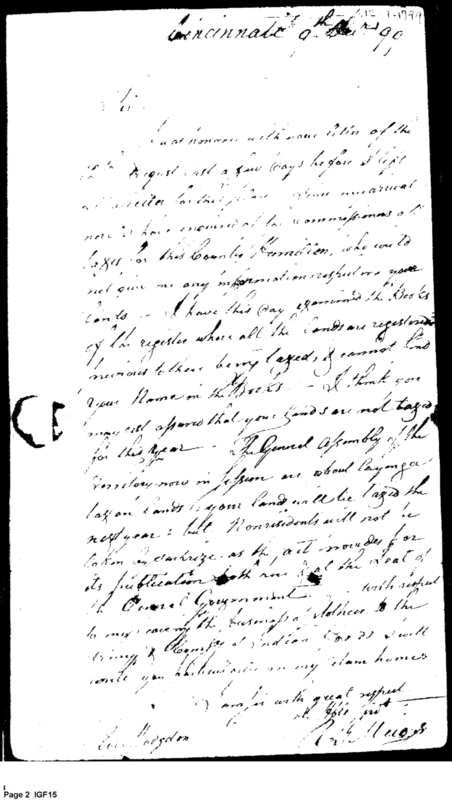 Cincinnati 9th Decr 99
Sir
I was honored with your letter of the
August last a few days before I left
Marietta for this place. Since my arrival
here I have enquired of the Commissioners of
taxes for this County Hamilton, who could
not give me any information respecting your
lands – I have this day examined the Books
of the register where all the lands are registered
previous to there being taxed, & cannot find
your Name in the Books – I think you
may rest assured that your lands are not taxed
for this year – The General Assembly of the
Territory now in session are about laying a
tax on lands & your land will be taxed the
next year: but Nonresidents will not be
taken by surprize as the act provides for
its publication both here & at the Seat of
the General Government. with respect
to my the business of Mathews to the
& of Indian I will
write you on my return home
I am Sir with great respect
Col. Hodgdon
R. J. Meigs
Page 2 IGF15